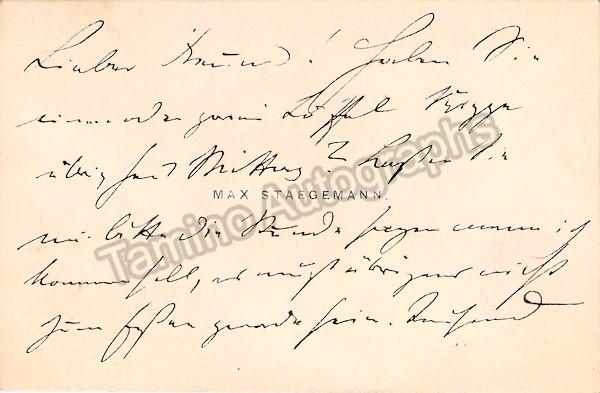 Lieber Freund! Haben Sie
einen oder zwei Löffel Suppe
übrig heut Mittag? Laßen Sie
MAX STAEGEMANN.
Tamino Autographs
mir bitte die Stunde sagen wann ich
kommen soll, es muß übrigens nicht
zum Eßen gerade sein. Tausend